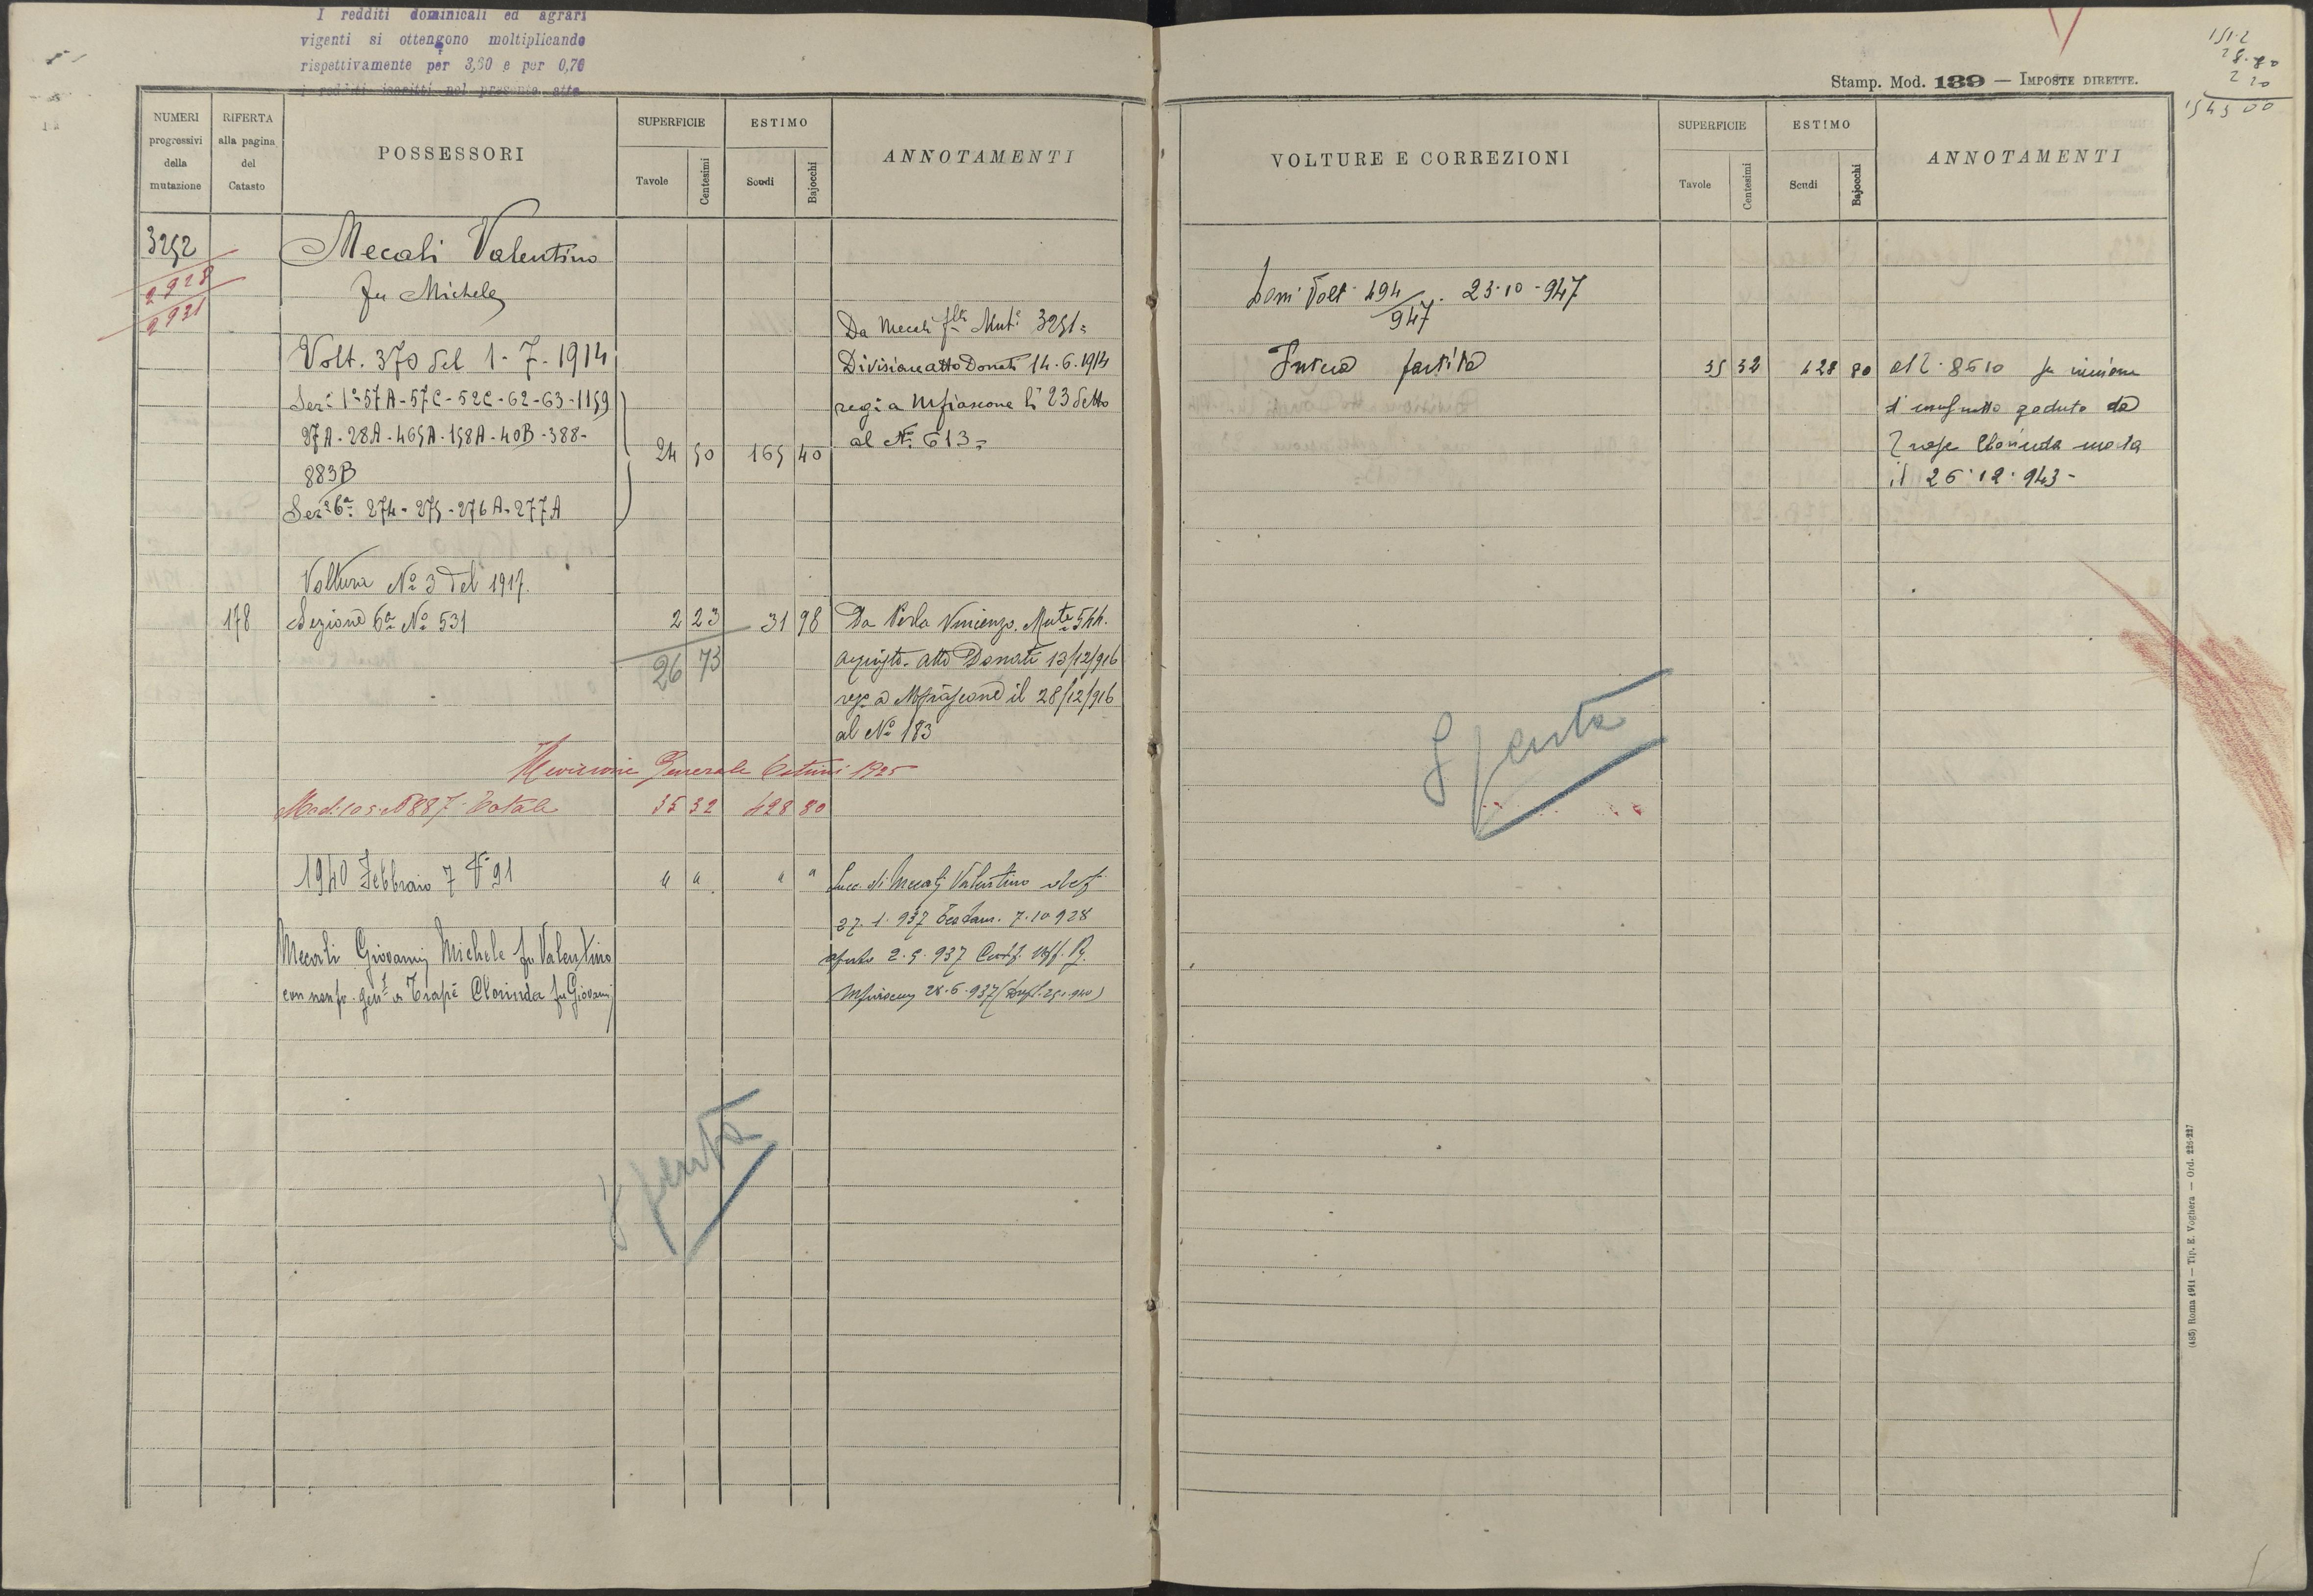 I redditi dominicali ed agrari
vigenti si ottengono moltiplicando
rispettivamente per 3,60 e per 0,70
i redditi iscritti nel presente atto
NUMERI progressivi della mutazione
RIFERTA alla pagina del Catasto
POSSESSORI
SUPERFICIE
Tavole
Centesimi
ESTIMO
Scudi
Bajocchi
ANNOTAMENTI
3252
2928
2931
Mecali Valentino
fu Michele
Da Mecali flli Muta 3251=
Volt. 370 del 1-7-1914
Divisione atto Donati 14.6.1914
Sez: 1a 57A-57C-52C-62-63-1159
reg: a Mfiascone li 23 detto
27A-28A-465A-158A-40B-388-
al No 613=
883B
24 50 165 40
Sez: 6a: 274-275-276A-277A
Voltura No 3 del 1917.
178 Sezione 6a No 531 2 23 31 98 Da Perla Vincenzo. Muta 544.
26 73
acquisto. atto Donati 13/12/916
reg. a Mfiascone il 28/12/916
al No 183
Revisione Generale Estimi 1925
Mod: 105. N 887 Totale 35 32 428 80
1940 Febbraio 7 V. 91 " " " "
Succ. di Mecali Valentino
27.1.937 7.10.928
Mecali Giovanni Michele fu Valentino
2.5.937
con Trapè Clorinda fu Giovanni
28.6.937
Spenta
Stamp. Mod. 139 — IMPOSTE DIRETTE.
151.2
28.80
2 20
154500
VOLTURE E CORREZIONI
SUPERFICIE
Tavole
Centesimi
ESTIMO
Scudi
Bajocchi
ANNOTAMENTI
Volt. 494/947. 23-10-947
Intera partita 35 32 428 80 al 2.8610 fu riunione
d'usufrutto goduto da
Trape Clorinda morta
il 26.12.943-
Spenta
(485) Roma 1911 — Tip. E. Voghera — Ord. 226-227